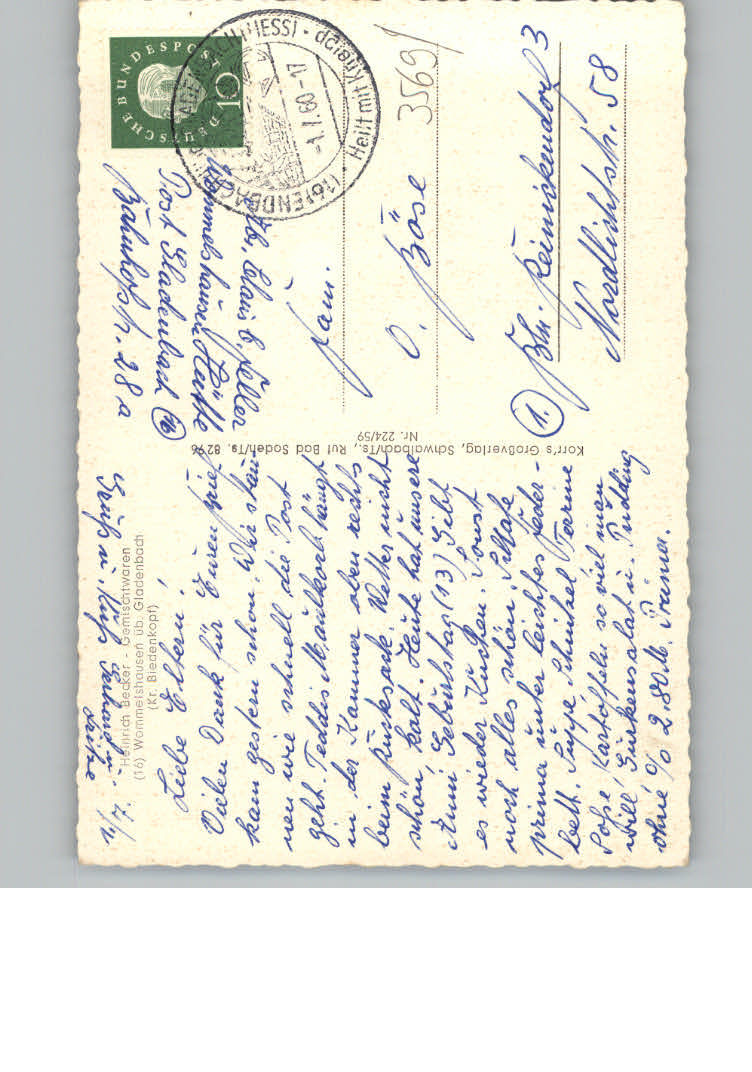 Heinrich Becker - Gemischtwaren
(16) Wommelshausen üb. Gladenbach
(Kr. Biedenkopf)
Liebe Eltern!
Vielen Dank für Euren Brief
kam gestern schon. Wir stau-
nen wie schnell die Post
geht. Teddis M. hängt
in der Kammer oben rechts
beim Rucksack. Wetter nicht
schön, kalt. Heute hat unsere
Anni Geburtstag (13) Gibt
es wieder Kuchen. Sonst
noch alles schön. Schlafe
prima unter leichtes Feder-
bett. Suppe, Schnitzel Terrine
Soße, Kartoffeln so viel man
will, Gurkensalat u. Pudding
ohne % 2.80 M. Prima.
Gruß u. Kuß
Korr's Großverlag, Schwalbach/Ts., Ruf Bad Soden/Ts. 8296
Nr. 224/59
DEUTSCHE BUNDESPOST
10
(16) ENDBACH
(HESS)
Heilt mit Kneipp
-1.7.60-17
3569
Wommelshauser Hütte
Post Gladenbach (16)
Bahnhofstr. 28a
Fam.
O. Böse
(1.) Bln. Reinickendorf 3
Nordlichtstr. 58